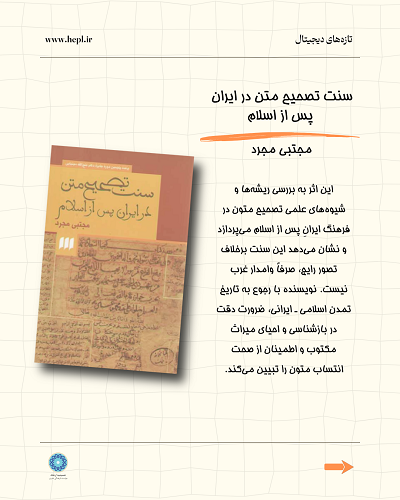 تازه‌های دیجیتال
www.hepl.ir
سنت تصحیح متن در ایران
پس از اسلام
مجتبی مجرد
این اثر به بررسی ریشه‌ها و
شیوه‌های علمی تصحیح متون در
فرهنگ ایرانِ پس از اسلام می‌پردازد
و نشان می‌دهد این سنت برخلاف
تصور رایج، صرفاً وامدار غرب
نیست. نویسنده با رجوع به تاریخ
تمدن اسلامی ـ ایرانی، ضرورت دقت
در بازشناسی و احیای میراث
مکتوب و اطمینان از صحت
انتساب متون را تبیین می‌کند.
سنت تصحیح متن
در ایران پس از اسلام
مجتبی مجرد